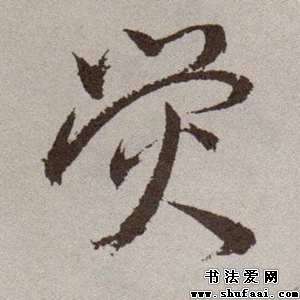 荧
书法爱网
www.shufaai.com